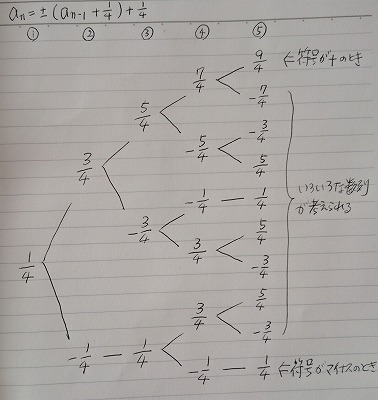 aₙ = ± (aₙ₋₁ + 1/4) + 1/4
① ② ③ ④ ⑤
9/4 ⇐符号が+のとき
7/4
-7/4
5/4
-3/4
-5/4
5/4
3/4
-1/4 — 1/4 いろいろな数列
が考えられる
-3/4
5/4
3/4
-3/4
1/4
5/4
3/4
-3/4
-1/4 — 1/4
-1/4 — 1/4 ⇐符号がマイナスのとき